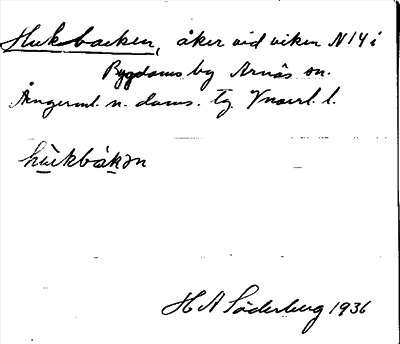 Hukbacken, åker vid viken N 14 i
Bygdoms by Arnäs sn.
Ångerml. n. doms. Tg Vnorrl. l.
hukbåkən
H A Söderberg 1936